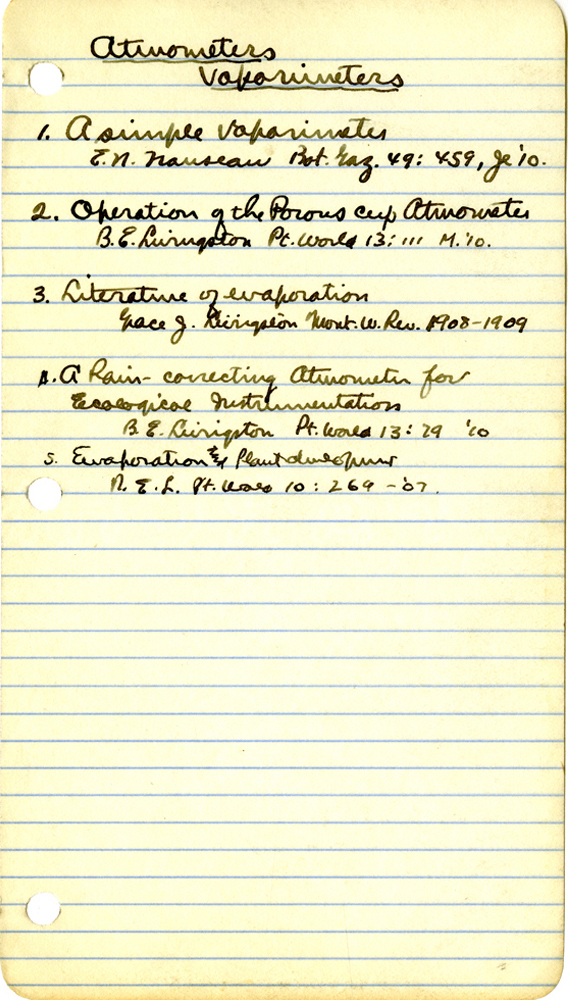 Atmometers
Vaporimeters
1. A simple Vaporimeter
E. N. Transeau Bot. Gaz. 49: 459, Je '10.
2. Operation of the Porous cup Atmometer
B. E. Livingston Pt. World 13: 111 M. '10.
3. Literature of evaporation
Grace J. Livingston Mont. W. Rev. 1908-1909
4. A Rain-correcting Atmometer for
Ecological Instrumentation
B. E. Livingston Pt. World 13: 79 '10
5. Evaporation & Plant development
B. E. L. Pt. World 10: 269 - '07.